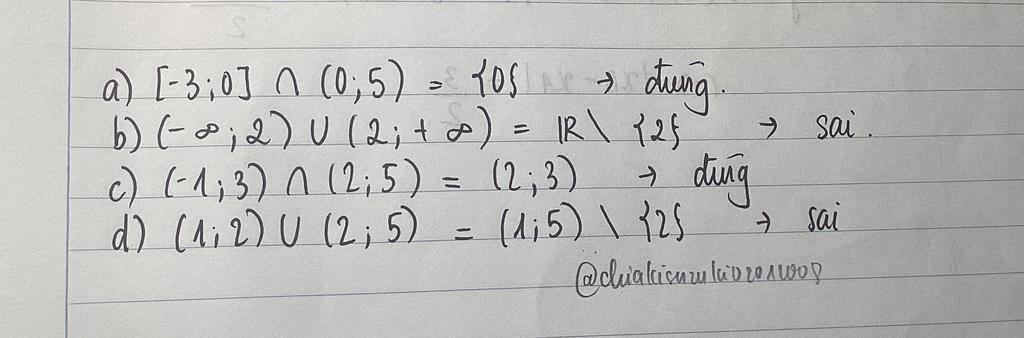 a) [-3;0] ∩ (0;5) = {0} → đúng.
b) (-∞;2) ∪ (2;+∞) = ℝ \ {2} → sai.
c) (-1;3) ∩ (2;5) = (2;3) → đúng
d) (1;2) ∪ (2;5) = (1;5) \ {2} → sai